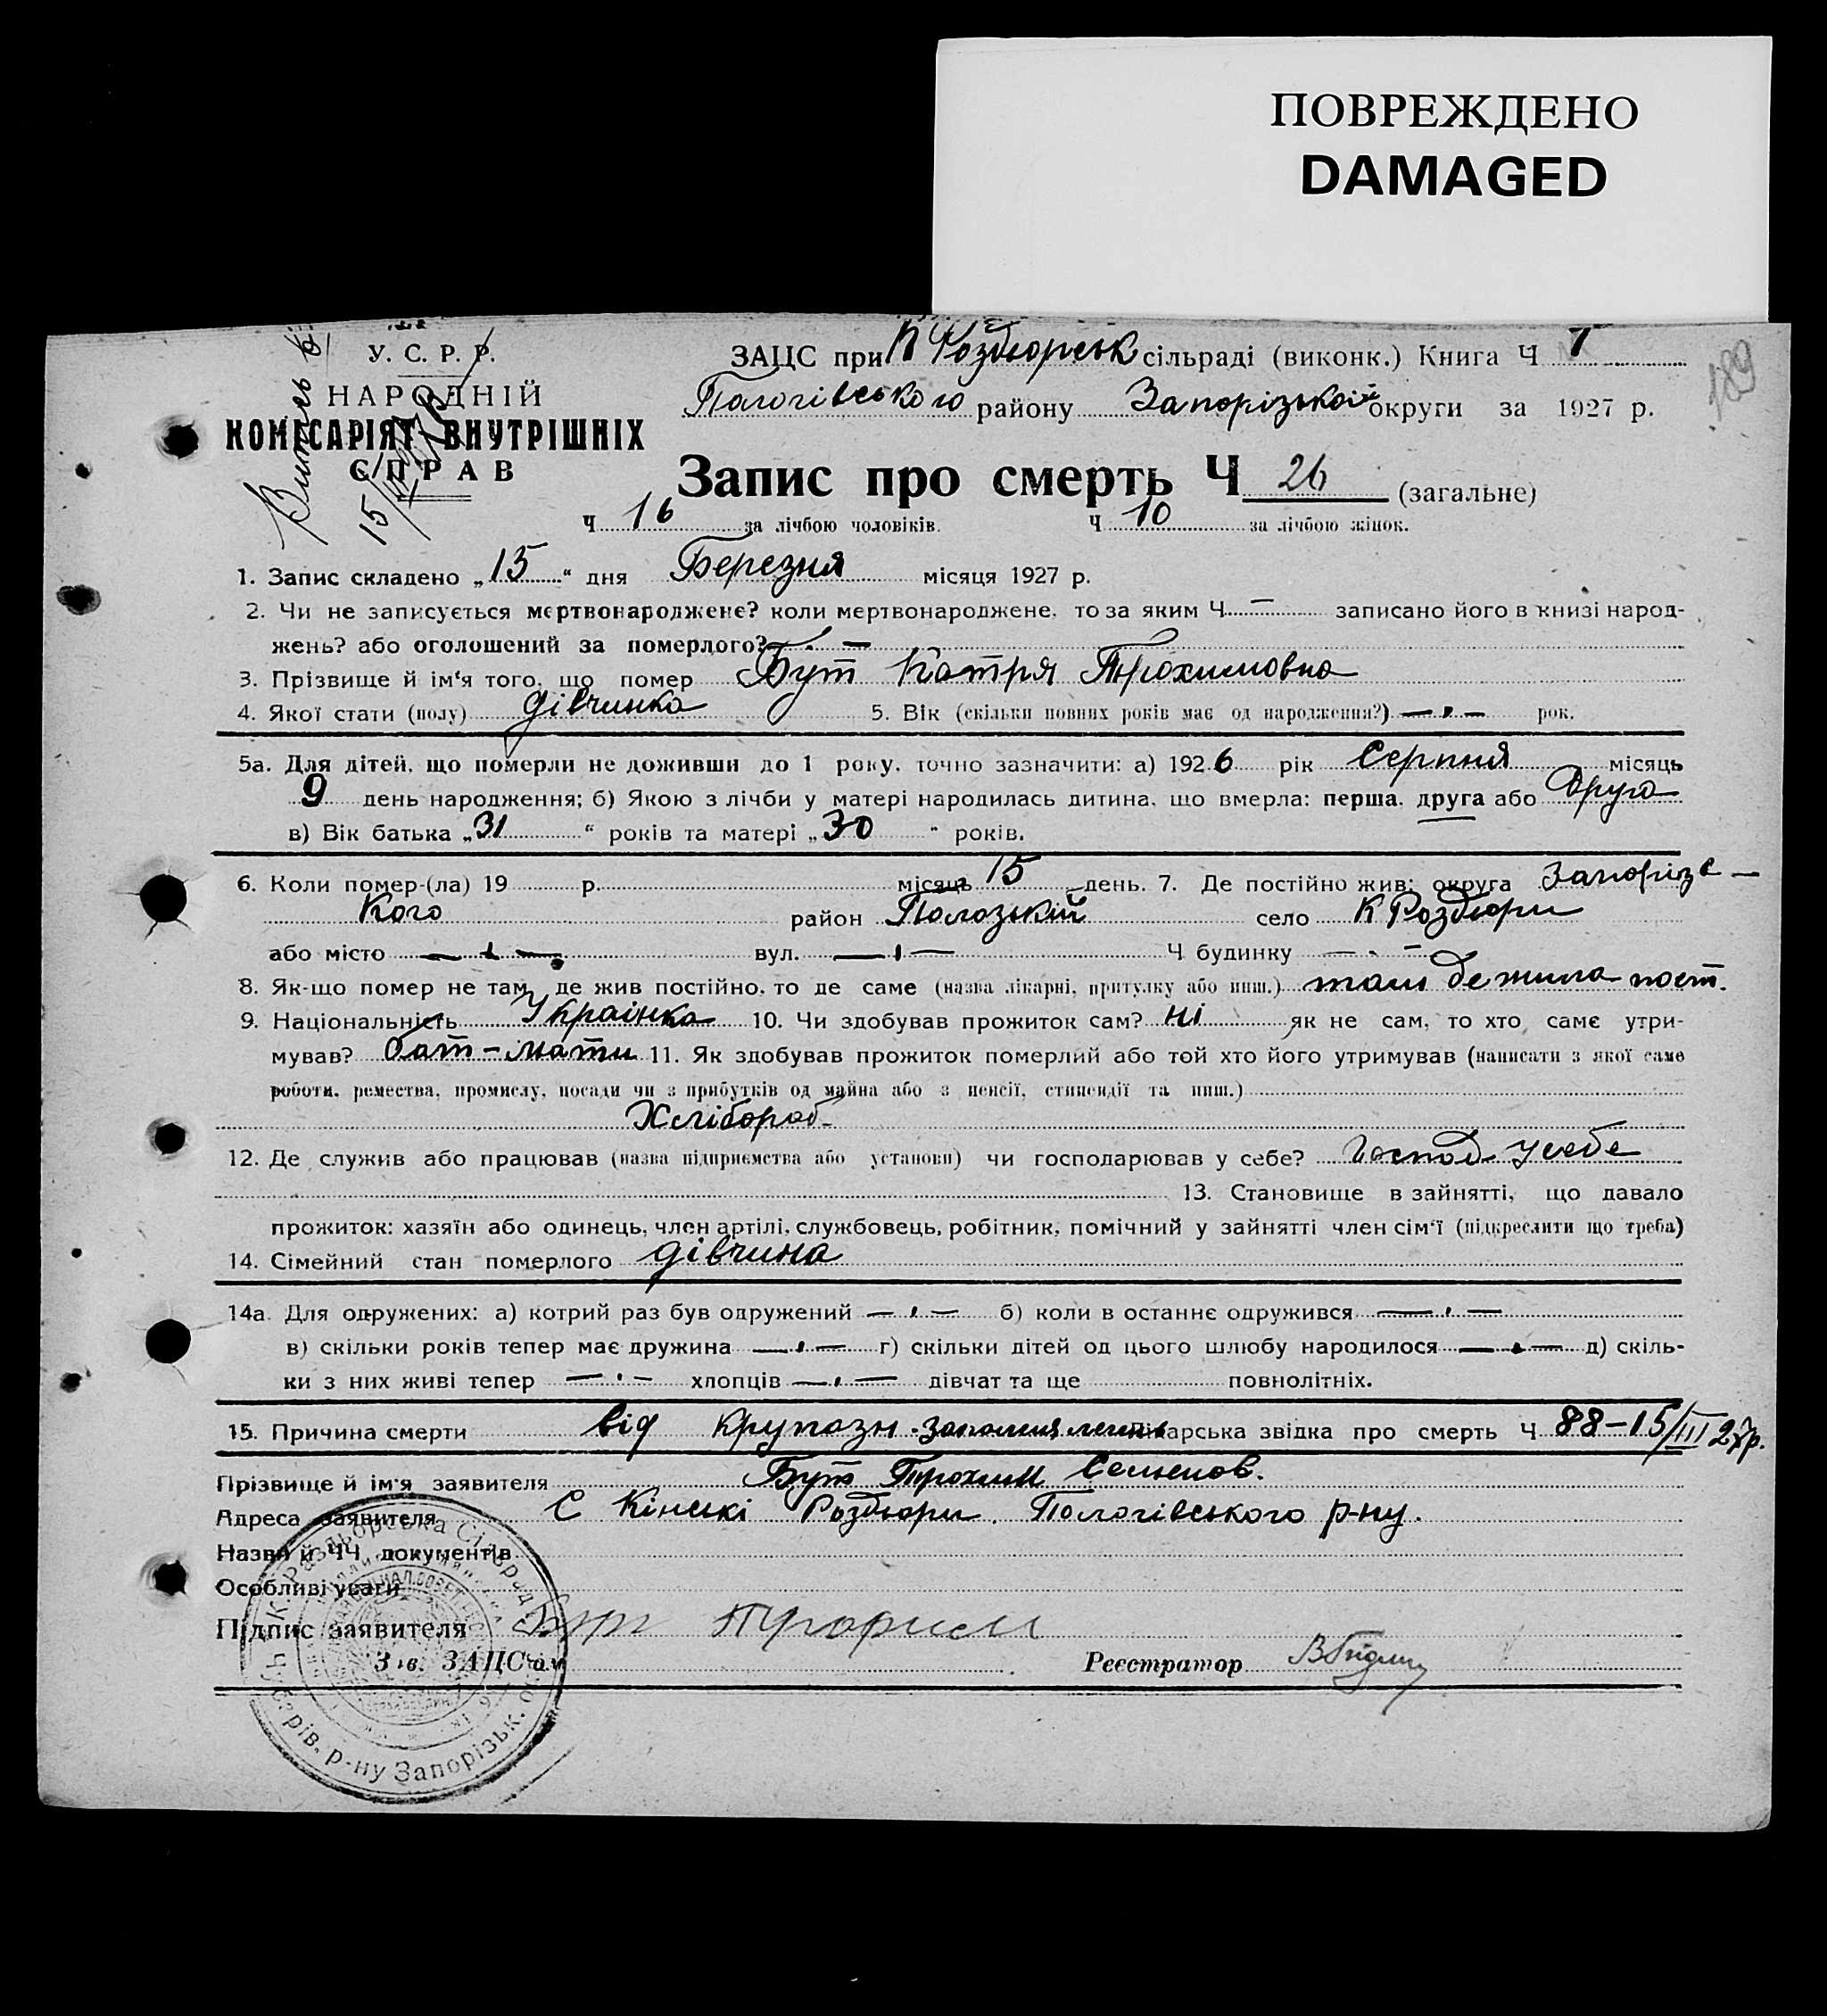 ПОВРЕЖДЕНО
DAMAGED
У. С. Р. Р.
НАРОДНІЙ
КОМІСАРІЯТ ВНУТРІШНІХ
СПРАВ
Витяг
15/III
189
ЗАЦС при К Роздорськ сільраді (виконк.) Книга Ч
Пологівського району Запорізької округи за 1927 р.
Запис про смерть Ч 26 (загальне)
Ч 16 за лічбою чоловіків. Ч 10 за лічбою жінок.
1. Запис складено „15“ дня Березня місяця 1927 р.
2. Чи не записується мертвонароджене? коли мертвонароджене, то за яким Ч — записано його в книзі народ-
жень? або оголошений за померлого? —
3. Прізвище й ім'я того, що помер Бут Катря Трохимовна
4. Якої стати (полу) дівчинка 5. Вік (скільки повних років має од народження?) — рок.
5а. Для дітей, що померли не доживши до 1 року, точно зазначити: а) 1926 рік Серпня місяць
9 день народження; б) Якою з лічби у матері народилась дитина, що вмерла: перша, друга або Друга
в) Вік батька „31“ років та матері „30“ років.
6. Коли помер-(ла) 19 р. місяць 15 день. 7. Де постійно жив: округа Запорізь-
кого район Полозький село К Роздори
або місто — вул. — Ч будинку —
8. Як-що помер не там, де жив постійно, то де саме (назва лікарні, притулку або инш.) там де жила пост.
9. Національність Українка 10. Чи здобував прожиток сам? ні як не сам, то хто саме утри-
мував? Бат-мати 11. Як здобував прожиток померлий або той хто його утримував (написати з якої саме
роботи, ремества, промислу, посади чи з прибутків од майна або з пенсії, стипендії та инш.)
Хлібороб-
12. Де служив або працював (назва підприємства або установи) чи господарював у себе? Господ у себе
13. Становище в зайнятті, що давало
прожиток: хазяїн або одинець, член артілі, службовець, робітник, помічний у зайнятті член сім'ї (підкреслити що треба)
14. Сімейний стан померлого дівчина
14а. Для одружених: а) котрий раз був одружений — б) коли в останнє одружився —
в) скільки років тепер має дружина — г) скільки дітей од цього шлюбу народилося — д) скіль-
ки з них живі тепер — хлопців — дівчат та ще повнолітніх.
15. Причина смерти від крупозн. запалення легень Лікарська звідка про смерть Ч 88-15/III 27р.
Прізвище й ім'я заявителя Бут Трохим Семенов.
Адреса заявителя С Кінські Роздори. Пологівського р-ну.
Назви й ЧЧ документів
Особливі уваги
Підпис заявителя Бут Трофим
Зав. ЗАЦС'ом Реєстратор
р-ну Запорізьк.